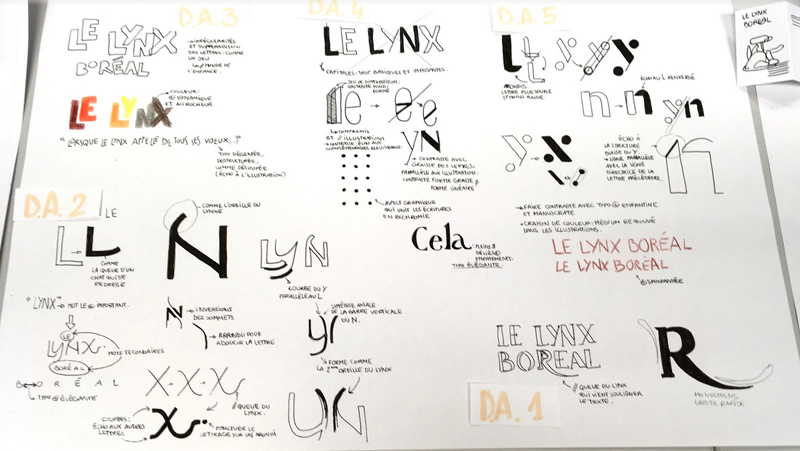 D.A. 3
LE LYNX
BORÉAL
→ IRRÉGULARITÉS
ET SUPERPOSITION
DES LETTRES : COMME
UN JEU
↳ MONDE DE
L'ENFANCE.
LE LYNX
COULEUR :
DYNAMIQUE
ET ACCROCHEUR
"LORSQUE LE LYNX APPELLE DE TOUS SES VOEUX..."
TYPO DÉGEMÉE,
DESTRUCTURÉE,
COMME DÉCOUPÉE
(ÉCHO À L'ILLUSTRATION)
D.A. 4
LE LYNX
CAPITALES : TRAIT BASIQUES ET IMPOSANTES.
JEU DE SUPERPOSITION :
e
e e
COMPROMIS
ET // ILLUSTRATIONS
y N
→ CONTRASTE AVEC
GRAISSE DES LETTRES :
PARALLÈLE AUX ILLUSTRATION :
CONTRASTE FORME GRASSE ≠
FORME LINÉAIRE
ASPECT GRAPHIQUE
QUI UNIT LES ÉCRITURES
EN BICHROMIE
D.A. 5
L L y y y
ARRONDIS :
LETTRE PLUS SOUPLE
ET MOINS RAIDE
ÉCHO AU L RENVERSÉ
n → n yn
y → x
ÉCHO À
LA STRUCTURE
BIAISE DU Y.
→ DANS PARALLÈLE
AVEC LA LIGNE
DIRECTRICE DE LA
LETTRE PRÉCÉDENTE.
n
→ FAIRE CONTRASTE AVEC TYPO ENFANTINE
ET MANUSCRITE
→ CRAYON DE COULEUR : MÉDIUM RETROUVÉ
DANS LES ILLUSTRATIONS.
LE LYNX BORÉAL
LE LYNX BORÉAL
SPONTANÉE
LE LYNX
BORÉAL
D.A. 2
LE
L L
COMME
LA QUEUE D'UN
CHAT QUI SE
REDRESSE
N
COMME L'OREILLE DU
LYNX
LYN
COURBE DU Y
PARALLÈLE AU L
Cela
: PLEINS &
DÉLIÉS
EMPATTEMENTS.
TYPO ÉLÉGANTE.
"LYNX" → MOT LE + IMPORTANT.
LE
LYNX
BORÉAL
MOTS SECONDAIRES
B O R É A L
↳ TYPO + ÉLÉGANTE
N
→ INVERSIONS
DES SOMMETS
→ ARRONDI POUR
ADOUCIR LA LETTRE
X → X → X
QUEUE DU
LYNX.
COURBES :
ÉCHO AUX AUTRES
LETTRES
x
PONCTUER LE
LETTRAGE SUR UN ARRONDI
SYMÉTRIE AXIALE
DE LA BARRE VERTICALE
DU N.
y
FORME COMME
LA 2ÈME OREILLE DU LYNX
UN
LE LYNX
BOREAL
QUEUE DU LYNX
QUI VIENT SOULIGNER
LE TEXTE.
D.A. 1
R
MOUVEMENT,
GESTE RAPIDE